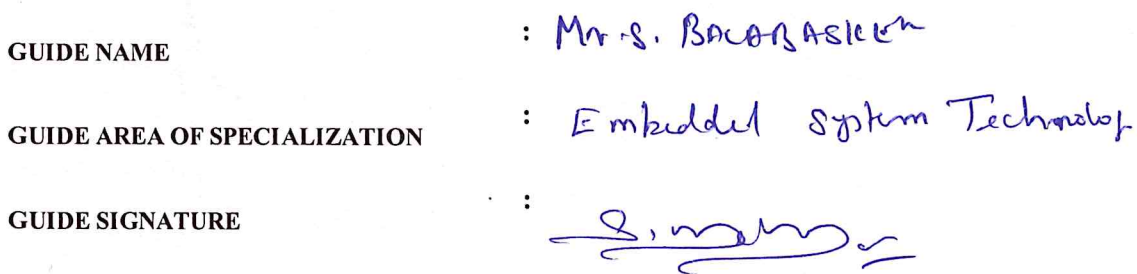 GUIDE NAME : Mr. S. BALABASKER
GUIDE AREA OF SPECIALIZATION : Embedded System Technology
GUIDE SIGNATURE :